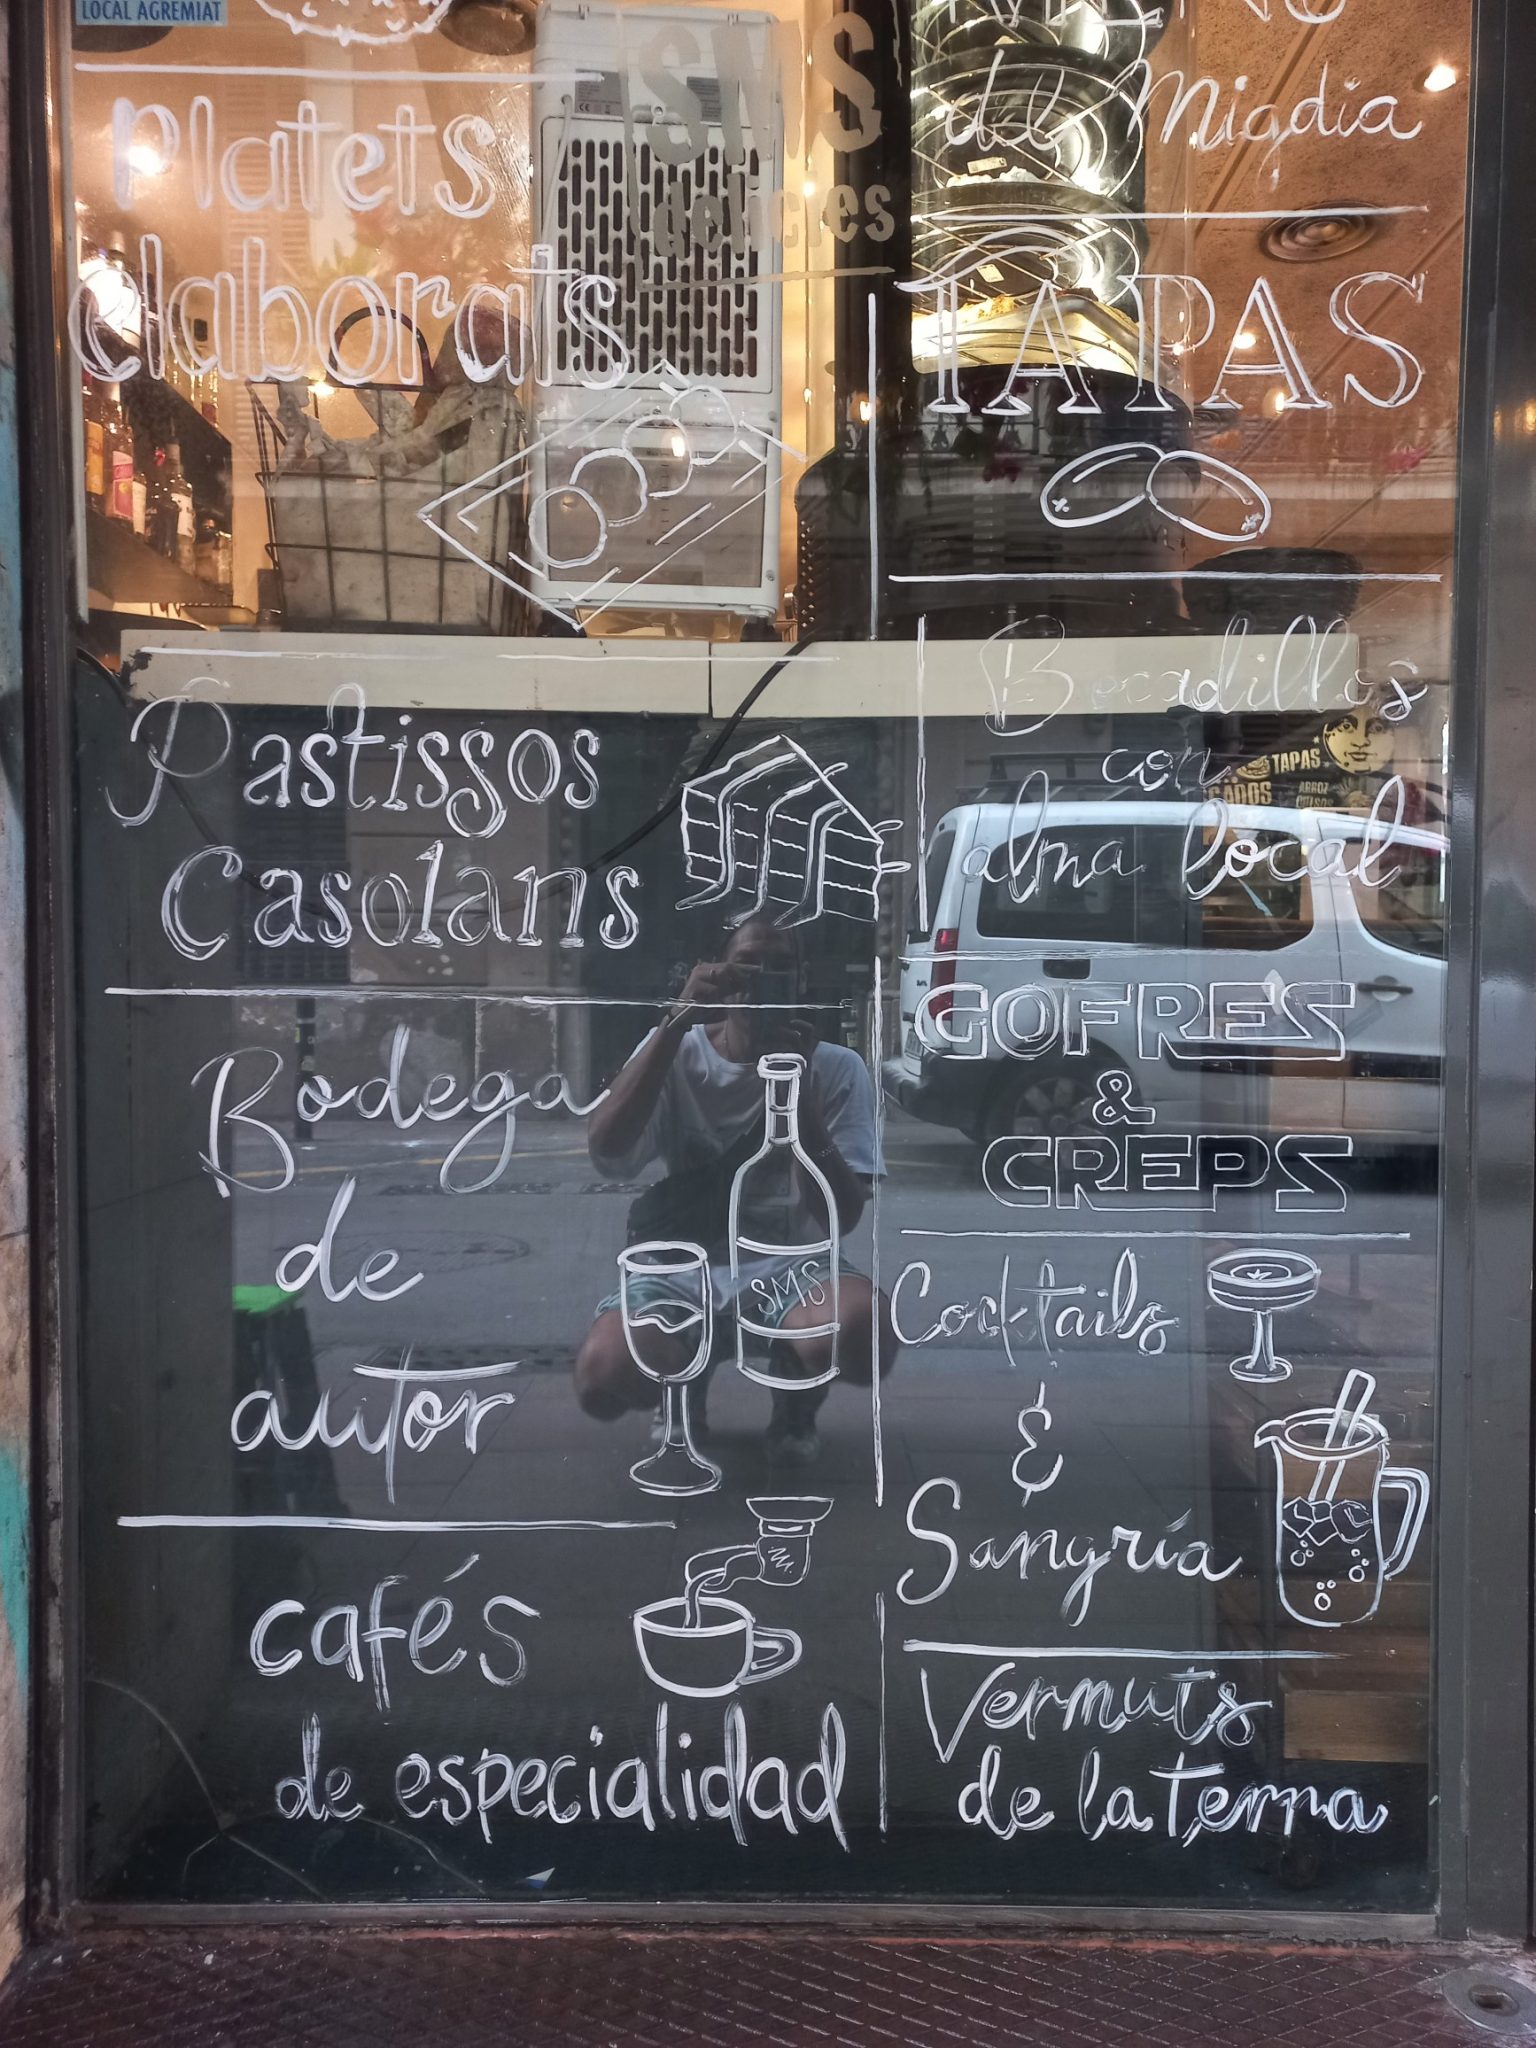 LOCAL AGREMIAT
Platets
elaborats
SMS
delicies
MENÚ
de Migdia
TAPAS
Pastissos
Casolans
Bocadillos
con
alma local
TAPAS
ARROZ
GOFRES
&
CREPS
Bodega
de
autor
SMS
Cocktails
&
Sangría
cafés
de especialidad
Vermuts
de la terra